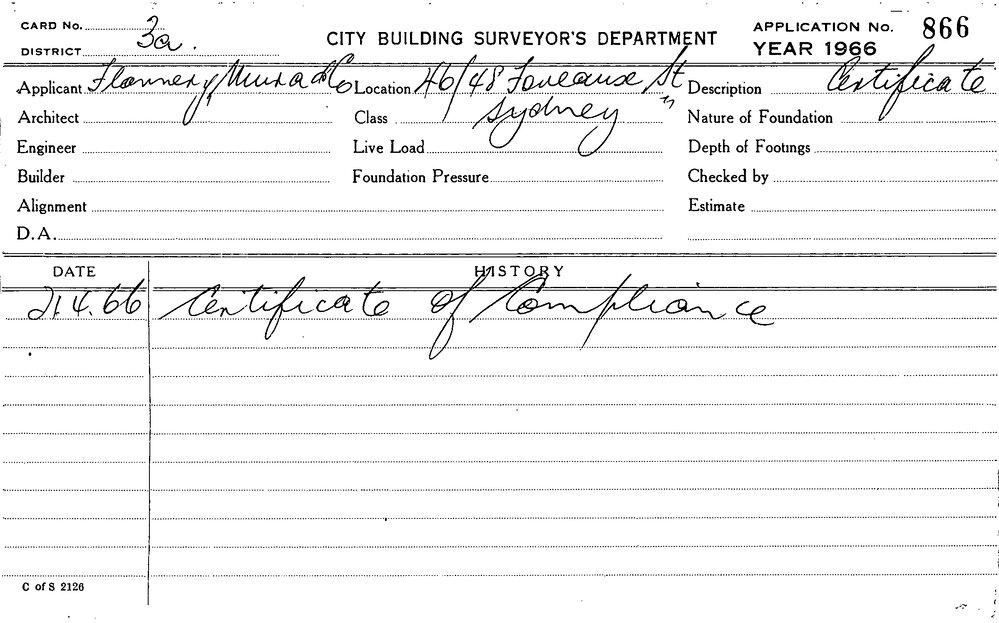 CARD No. 3a.
DISTRICT
CITY BUILDING SURVEYOR'S DEPARTMENT
APPLICATION No. 866
YEAR 1966
Applicant Flannery, & Co Location 46/48 Foveaux St Description Certificate
Architect Class Sydney Nature of Foundation
Engineer Live Load Depth of Footings
Builder Foundation Pressure Checked by
Alignment Estimate
D.A.
DATE HISTORY
21.4.66 Certificate of Compliance
C of S 2126